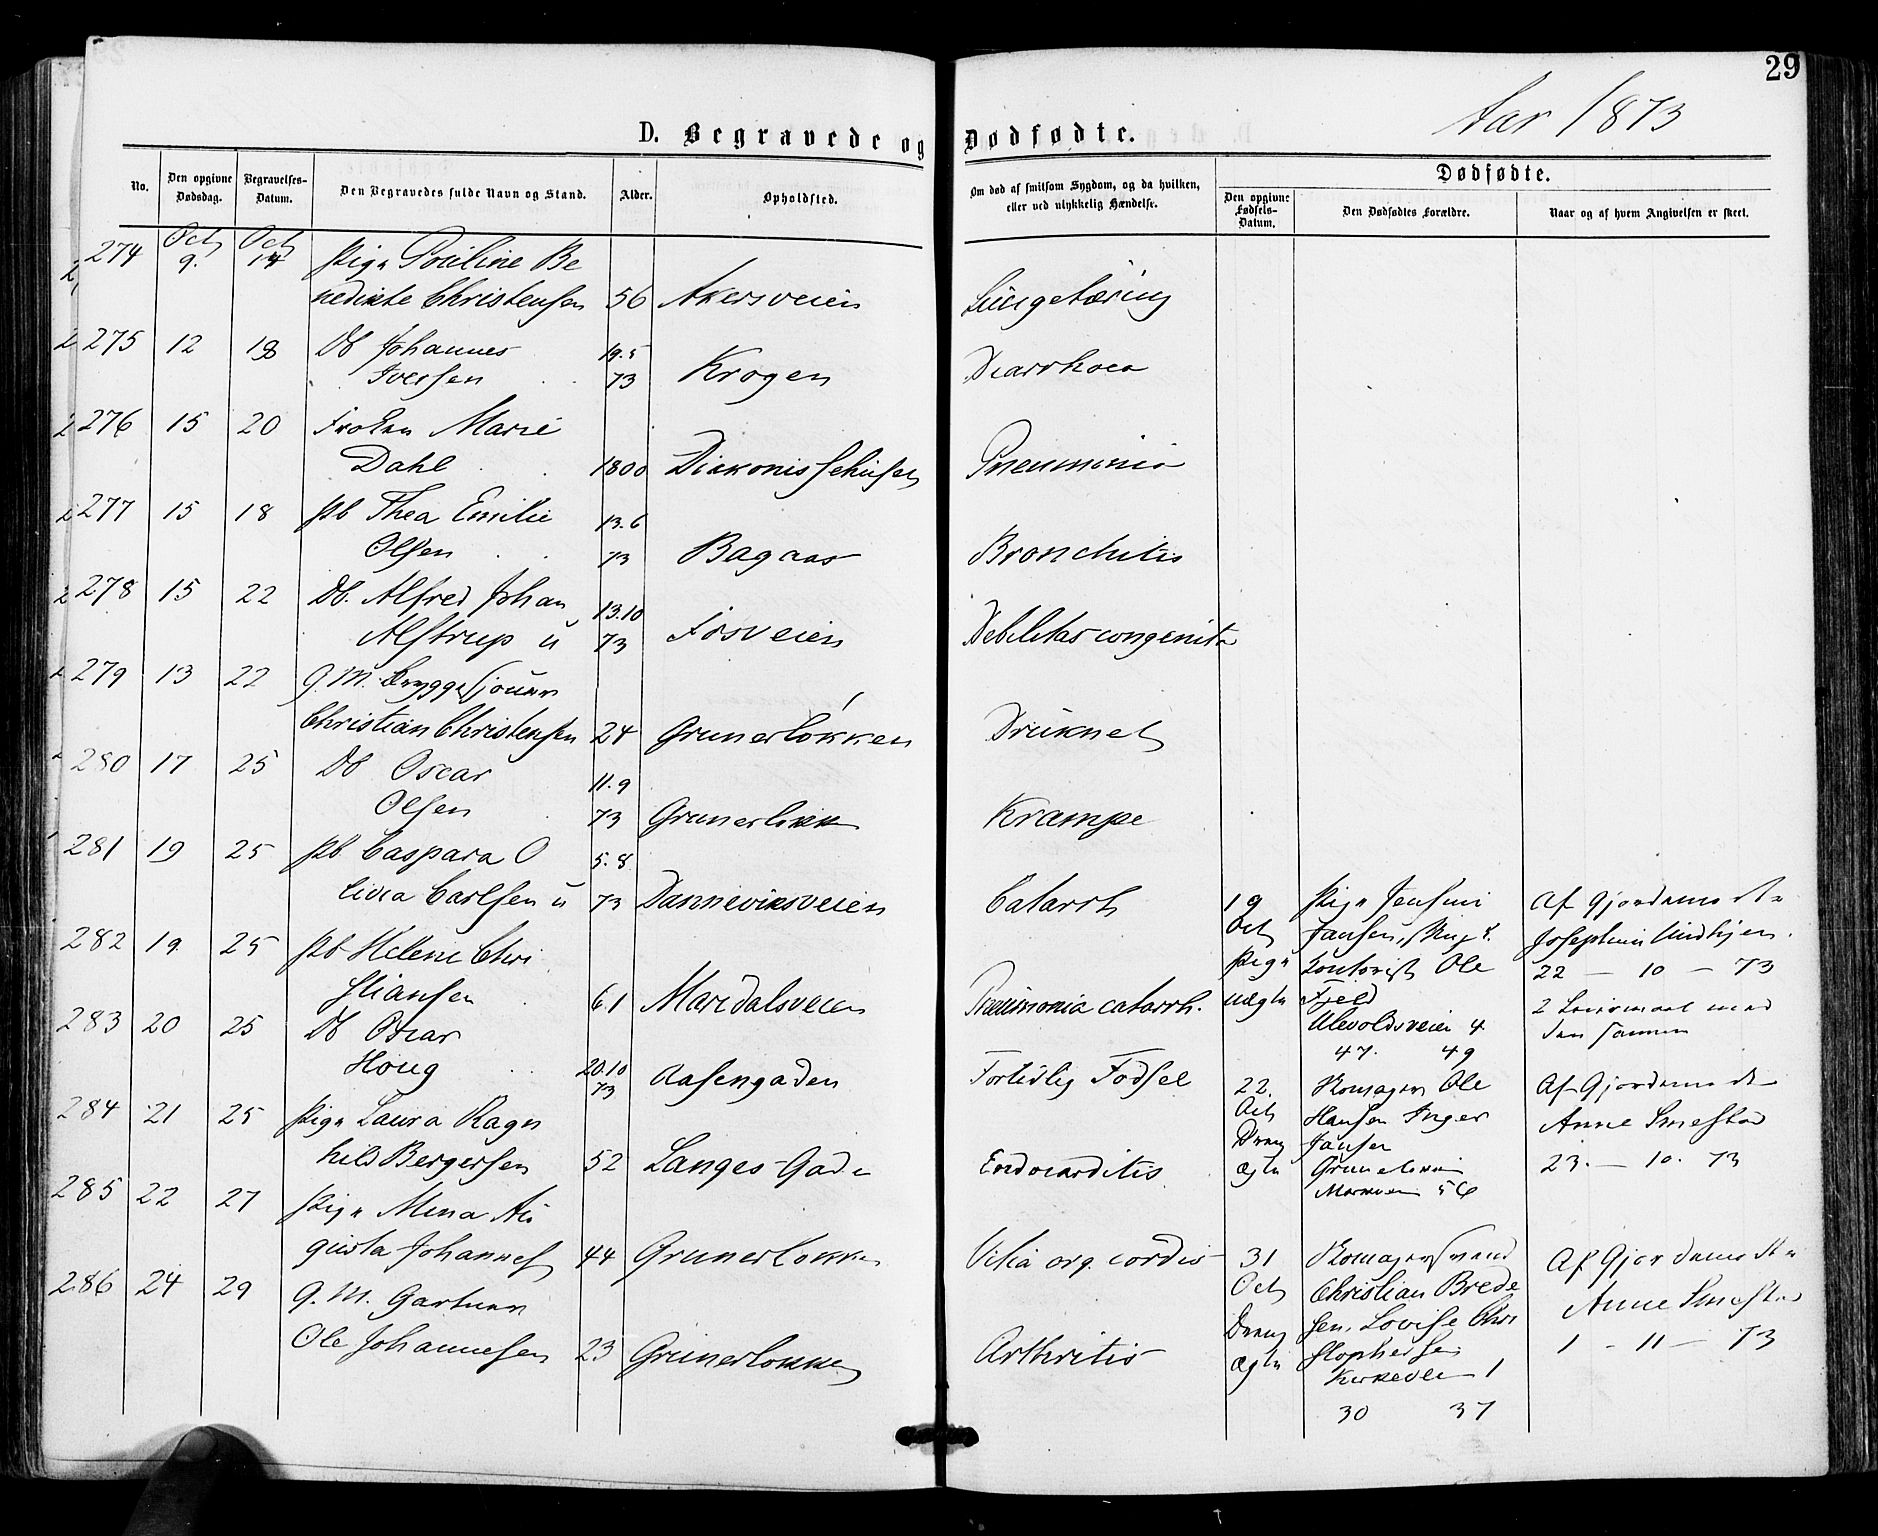 29
Aar 1873
D. Begravede og Dødfødte.
No. Den opgivne Dødsdag. Begravelses-Datum. Den Begravedes fulde Navn og Stand. Alder. Opholdsted. Om død af smitsom Sygdom, og da hvilken, eller ved ulykkelig Hændelse.
Dødfødte.
Den opgivne Fødsels-Datum. Den Dødfødtes Forældre. Naar og af hvem Angivelsen er skeet.
274 Oct 9. Oct 14 Pige Pouline Be
nedikte Christensen 56 Akersveien Lungetæring
275 12 18 Db Johannes 19.5
Iversen 73 Krogen Diarrhoea
276 15 20 Frøken Marie
Dahl 1800 Diakonissehuset Pneumonia
277 15 18 Pb Thea Emilie 13.6
Olsen 73 Bagaas Bronchitis
278 15 22 Db. Alfred Johan 13.10
Alstrup u 73 Fosveien Debilitas congenita
279 13 22 G.M. Bryggesjouer
Christian Christensen 24 Grunerløkken Druknet
280 17 25 Db Oscar 11.9
Olsen 73 Grunerløkk Krampe
281 19 25 Pb Caspara O 5.8
livia Carlsen u 73 Danneviksveien Catarrh
282 19 25 Pb Helene Chri
stiansen 6.1 Maridalsveien Pneumonia catarrh.
283 20 25 Db Oscar
Houg 20.10 73 Aasengaden Fortidlig Fødsel
284 21 25 Pige Laura Ragn
hild Bergersen 52 Langes-Gade Endocarditis
285 22 27 Pige Mina Au
gusta Johannes 44 Grunerløkke Vitia org. cordis
286 24 29 G.M. Gartner
Ole Johannesen 23 Grunerløkke Arthritis
19 Pige Jensine Af Gjordemodr
Oct Jansen, Ung k. Josephine Lindhjem.
Pige Kontorist Ole 22 - 10 - 73
uægte Fjeld 2 Leiermaal med
Ulevoldsveien 4. den samme
47. 49
22. Skomager Ole Af Gjordemodr
Oct Hansen Inger Anne Smestad
Dreng Jansen 23. - 10. 73
ægte Grunerløkken
Markveien 56
31 Skomagersvend Af Gjordemodr
Oct Christian Brede Anne Smestad
Dreng sen, Lovise Chri 1 - 11 - 73
ægte stophersen
Kirkeveien 1
30 37